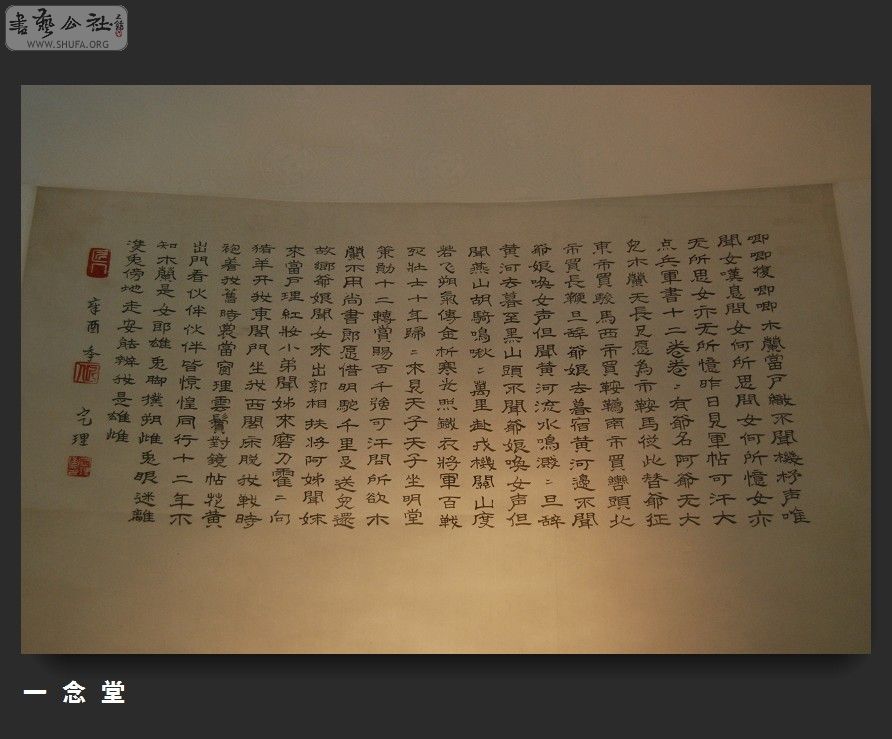 書藝公社
WWW.SHUFA.ORG
唧唧復唧唧木蘭當戶織不聞機杼声唯
聞女嘆息問女何所思問女何所憶女亦
无所思女亦无所憶昨日見軍帖可汗大
点兵軍書十二卷卷﹦有爺名阿爺无大
兒木蘭无長兄愿為市鞍馬從此替爺征
東市買駿馬西市買鞍韉南市買轡頭北
市買長鞭旦辞爺娘去暮宿黃河邊不聞
爺娘喚女声但聞黃河流水鳴濺﹦旦辞
黃河去暮至黑山頭不聞爺娘喚女声但
聞燕山胡騎鳴啾﹦萬里赴戎機關山度
若飞朔氣傳金柝寒光照鐵衣將軍百戰
死壯士十年歸﹦來見天子天子坐明堂
策勛十二轉賞賜百千強可汗問所欲木
蘭不用尚書郎愿借明駝千里足送兒還
故鄉爺娘聞女來出郭相扶將阿姊聞妹
來當戶理紅妝小弟聞姊來磨刀霍﹦向
豬羊开我東閣門坐我西閣床脫我戰時
袍着我舊時裳當窗理雲鬢對鏡帖花黃
出門看伙伴伙伴皆惊惶同行十二年不
知木蘭是女郎雄兔脚撲朔雌兔眼迷離
雙兔傍地走安能辨我是雄雌
辛酉季
一念堂